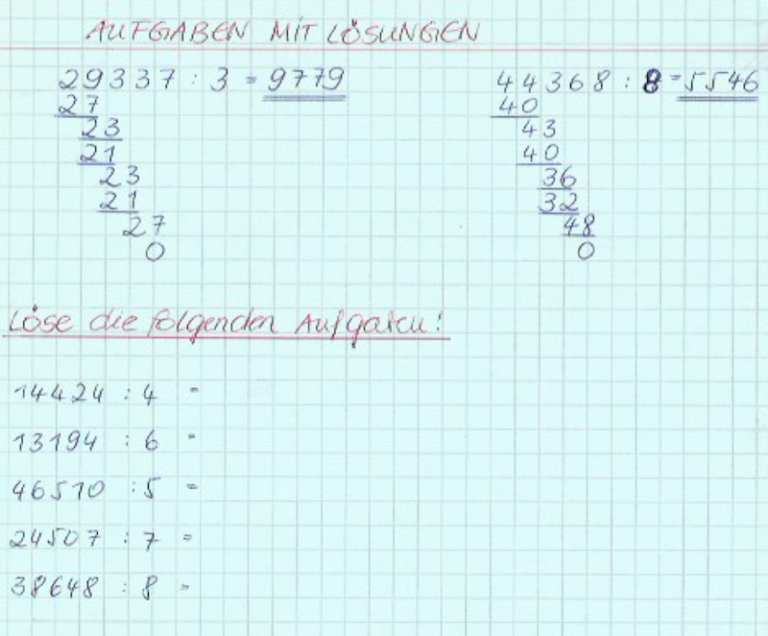 AUFGABEN MIT LÖSUNGEN
29337 : 3 = 9779
27
23
21
23
21
27
0
44368 : 8 = 5546
40
43
40
36
32
48
0
Löse die folgenden Aufgaben!
14424 : 4 =
13194 : 6 =
46510 : 5 =
24507 : 7 =
38648 : 8 =